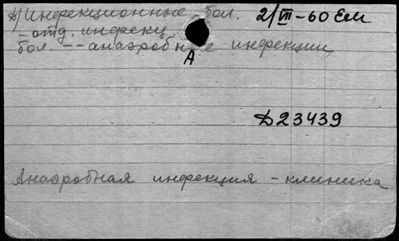 А/Инфекционные бол. 2/III-60 Ем
- отд. инфекц.
бол. -- анаэробные инфекции
А
Д23439
Анаэробная инфекция - клиника